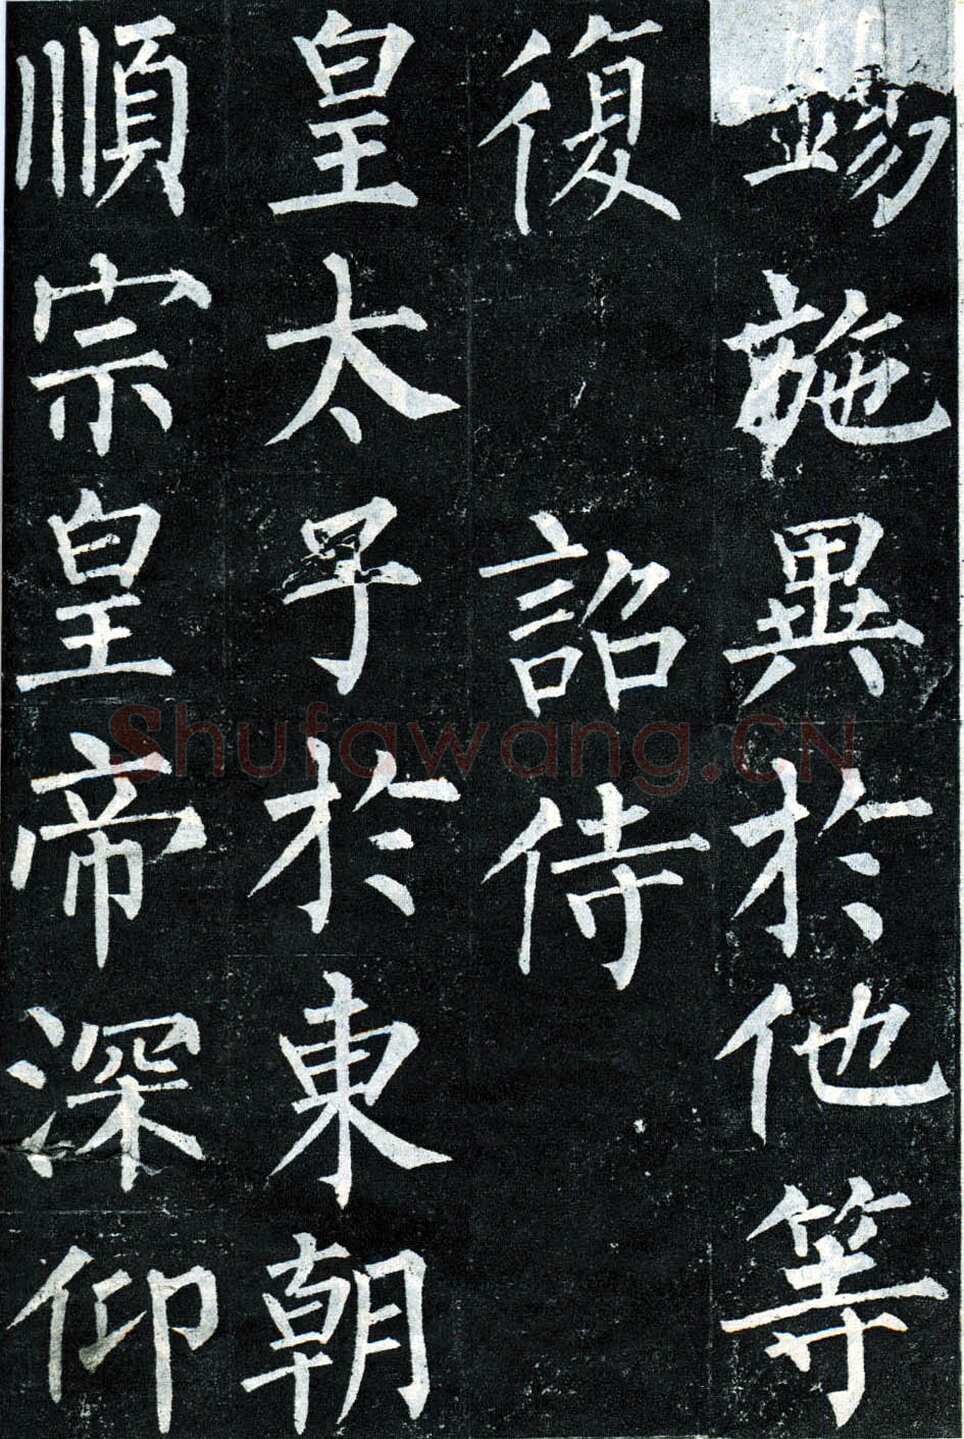 錫施異於他等
復 詔侍
皇太子於東朝
順宗皇帝深仰
Shufawang.CN